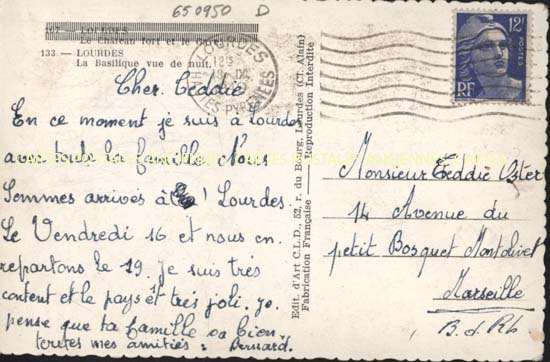 650950 D
107 - LOURDES
Le Château fort et le Gave
133 — LOURDES
La Basilique vue de nuit.
LOURDES
HTES-PYRÉNÉES
12F
POSTES
RF
Cher. Teddie
En ce moment je suis à Lourdes
avec toute la famille. Nous
Sommes arrivés à Lourdes.
Le Vendredi 16 et nous en.
repartons le 19. Je suis très
content et le pays et très joli. Je.
pense que ta famille va bien.
toutes mes amitiés : Bernard.
Edit. d'Art C.L.D., 52, r. du Bourg, Lourdes (Cl. Alain)
Fabrication Française — Reproduction Interdite
Monsieur Teddie
14 Avenue du
petit Bosquet Montolivet
Marseille
B. d. Rh